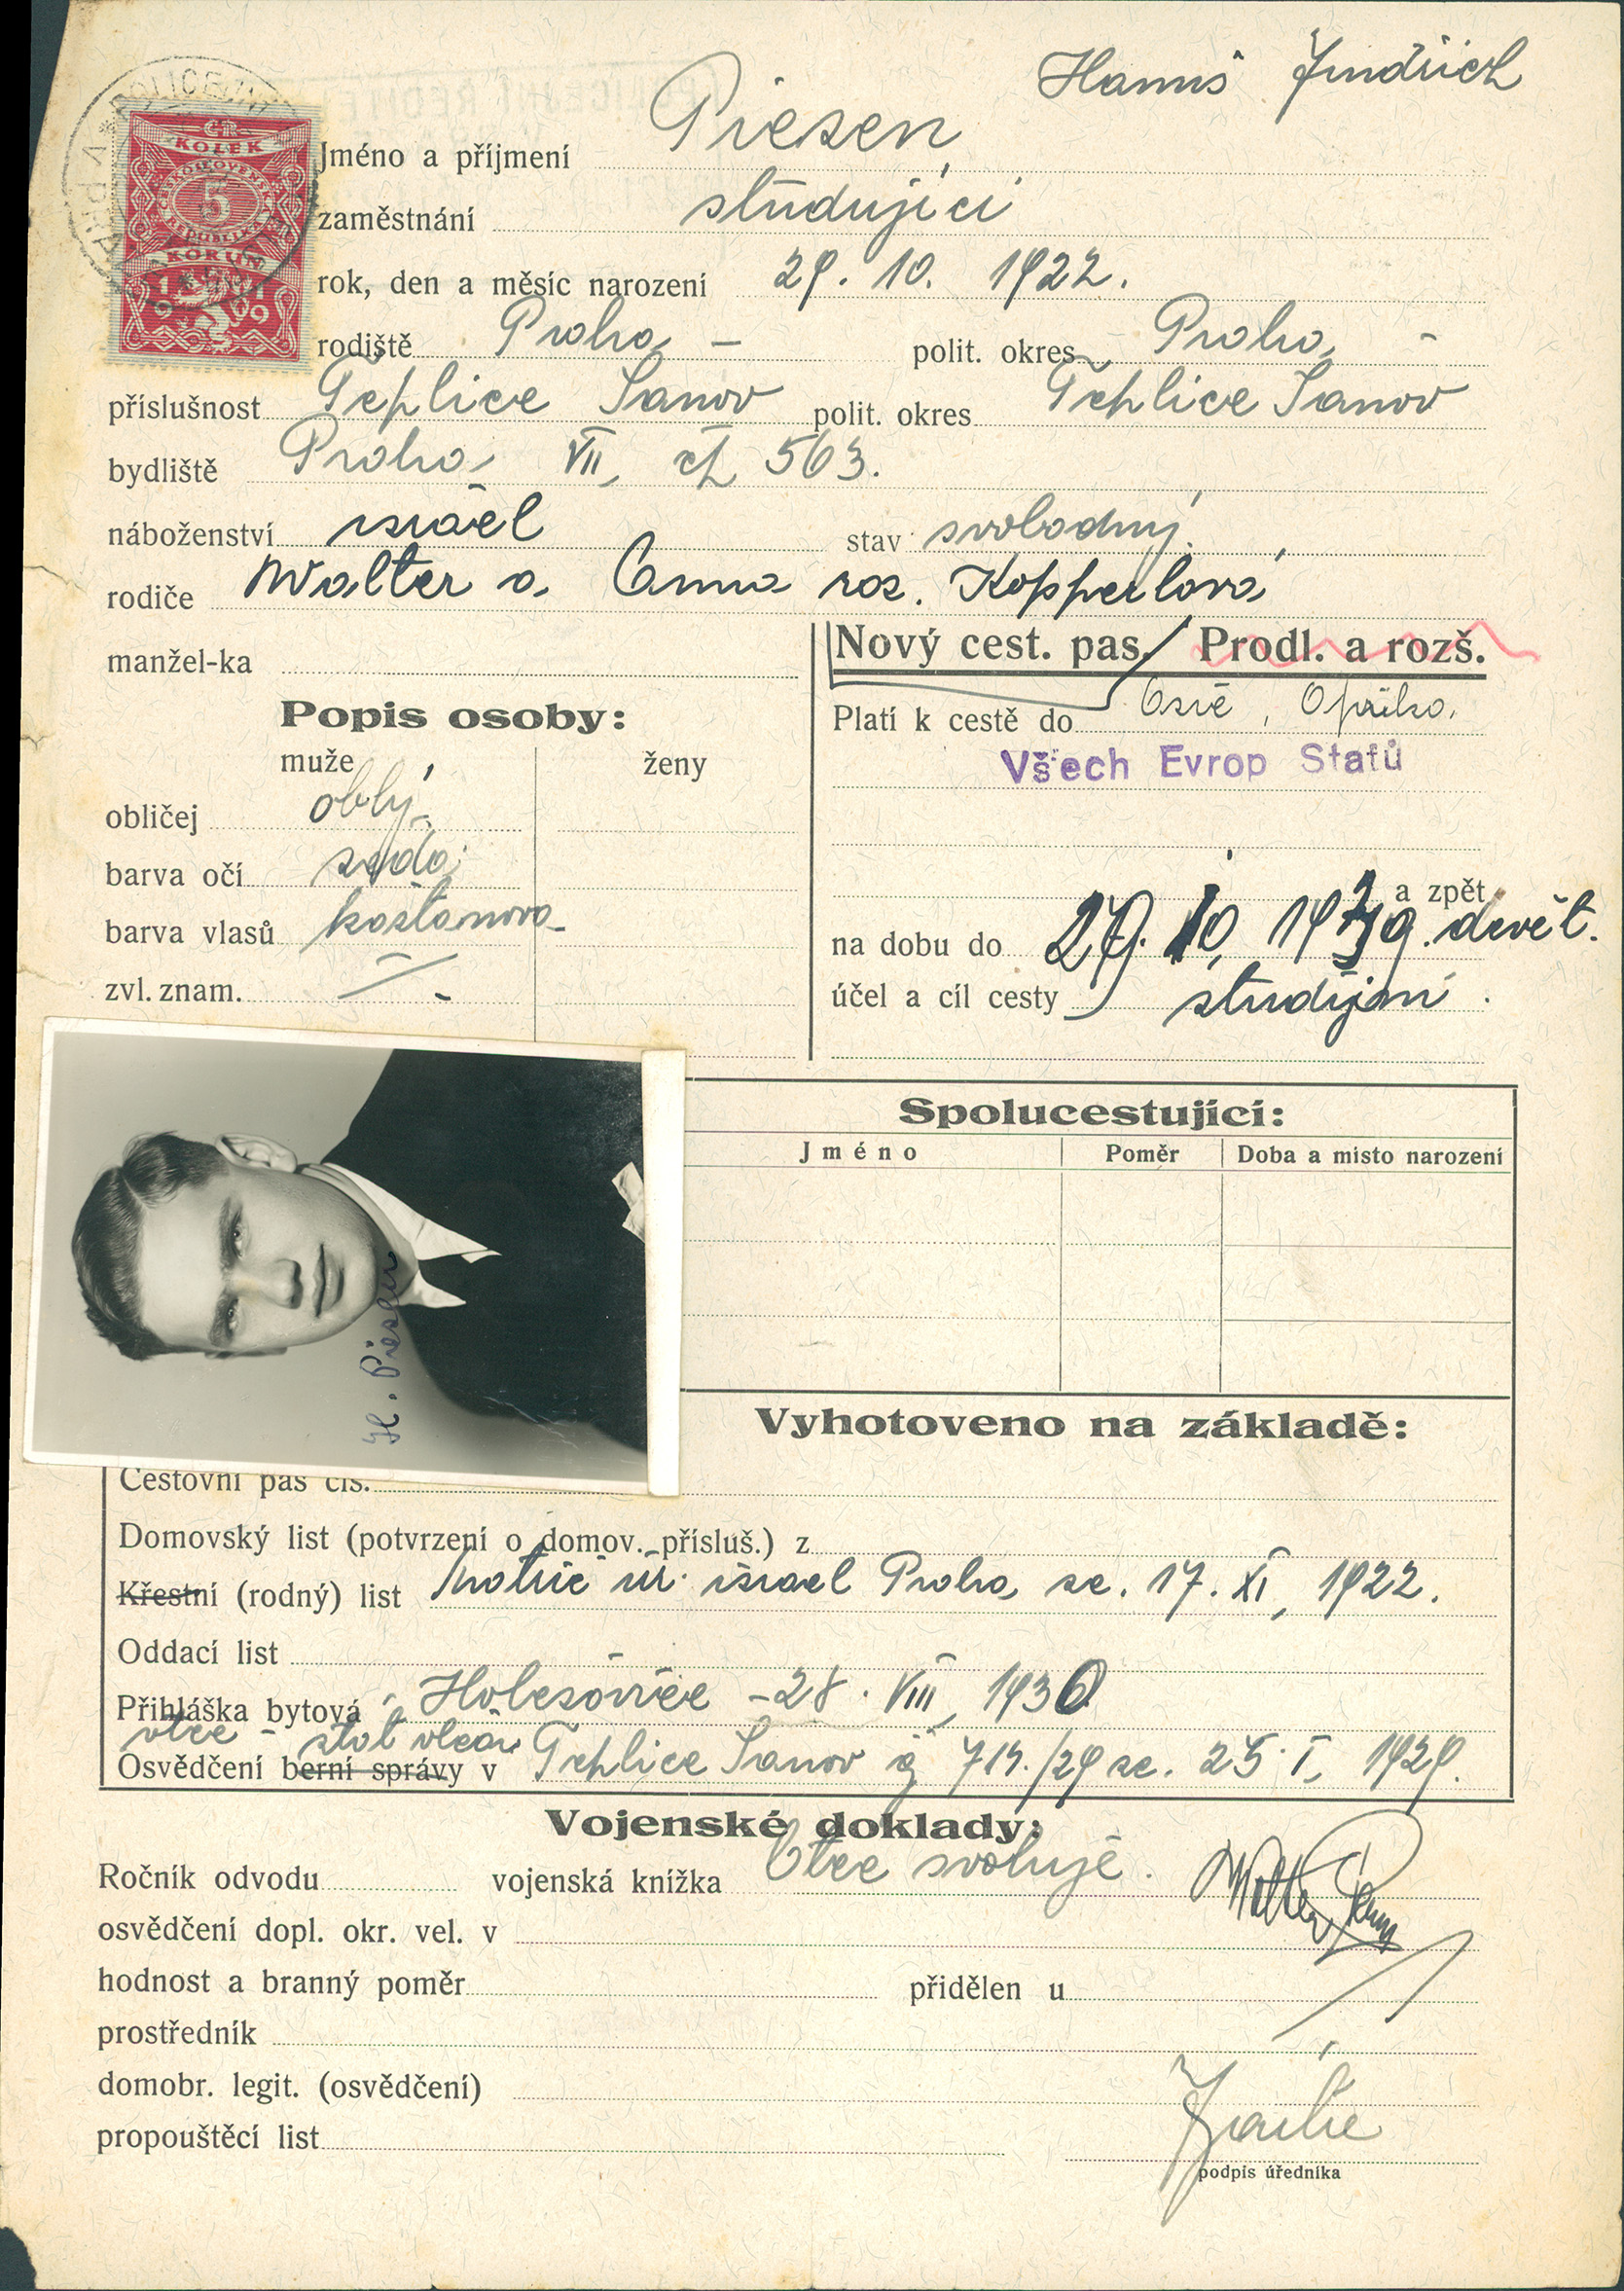 Hanuš Jindřich
Jméno a příjmení Piesen
zaměstnání studující
rok, den a měsíc narození 29. 10. 1922.
rodiště Praha - polit. okres Praha -
příslušnost Teplice Šanov polit. okres Teplice Šanov
bydliště Praha VII, čp 563.
náboženství israel stav svobodný.
rodiče Walter a Anna roz. Kopperlová
manžel-ka
Nový cest. pas / Prodl. a rozš.
Platí k cestě do Asie, Afrika.
Všech Evrop Statů
a zpět
na dobu do 29. 10. 1939. devět.
účel a cíl cesty studijní.
Popis osoby:
muže ženy
obličej oblý
barva očí šedá
barva vlasů kaštanová
zvl. znam. -
ČR
KOLEK
ČESKOSLOVENSKÁ
5
REPUBLIKA
KORUN
19
H. Piesen
Spolucestující:
Jméno Poměr Doba a místo narození
Vyhotoveno na základě:
Cestovní pas čís.
Domovský list (potvrzení o domov. přísluš.) z
Křestní (rodný) list Matric úř. israel Praha ze. 17. XI, 1922.
Oddací list
Přihláška bytová Holešovice - 28. VIII, 1936
otce -
Osvědčení berní správy v Teplice Šanov čj 715./29 ze. 25. I, 1929.
Vojenské doklady:
Ročník odvodu vojenská knížka Otec svoluje.
Walter Piesen
osvědčení dopl. okr. vel. v
hodnost a branný poměr přidělen u
prostředník
domobr. legit. (osvědčení)
propouštěcí list
podpis úředníka